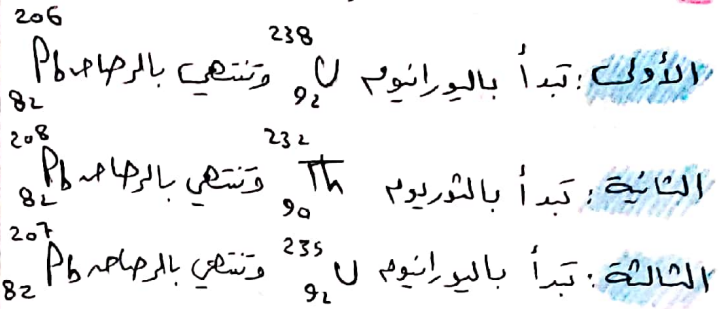 الأولى: تبدأ باليورانيوم ²³⁸₉₂U وتنتهي بالرصاص ²⁰⁶₈₂Pb
الثانية: تبدأ بالثوريوم ²³²₉₀Th وتنتهي بالرصاص ²⁰⁸₈₂Pb
الثالثة: تبدأ باليورانيوم ²³⁵₉₂U وتنتهي بالرصاص ²⁰⁷₈₂Pb